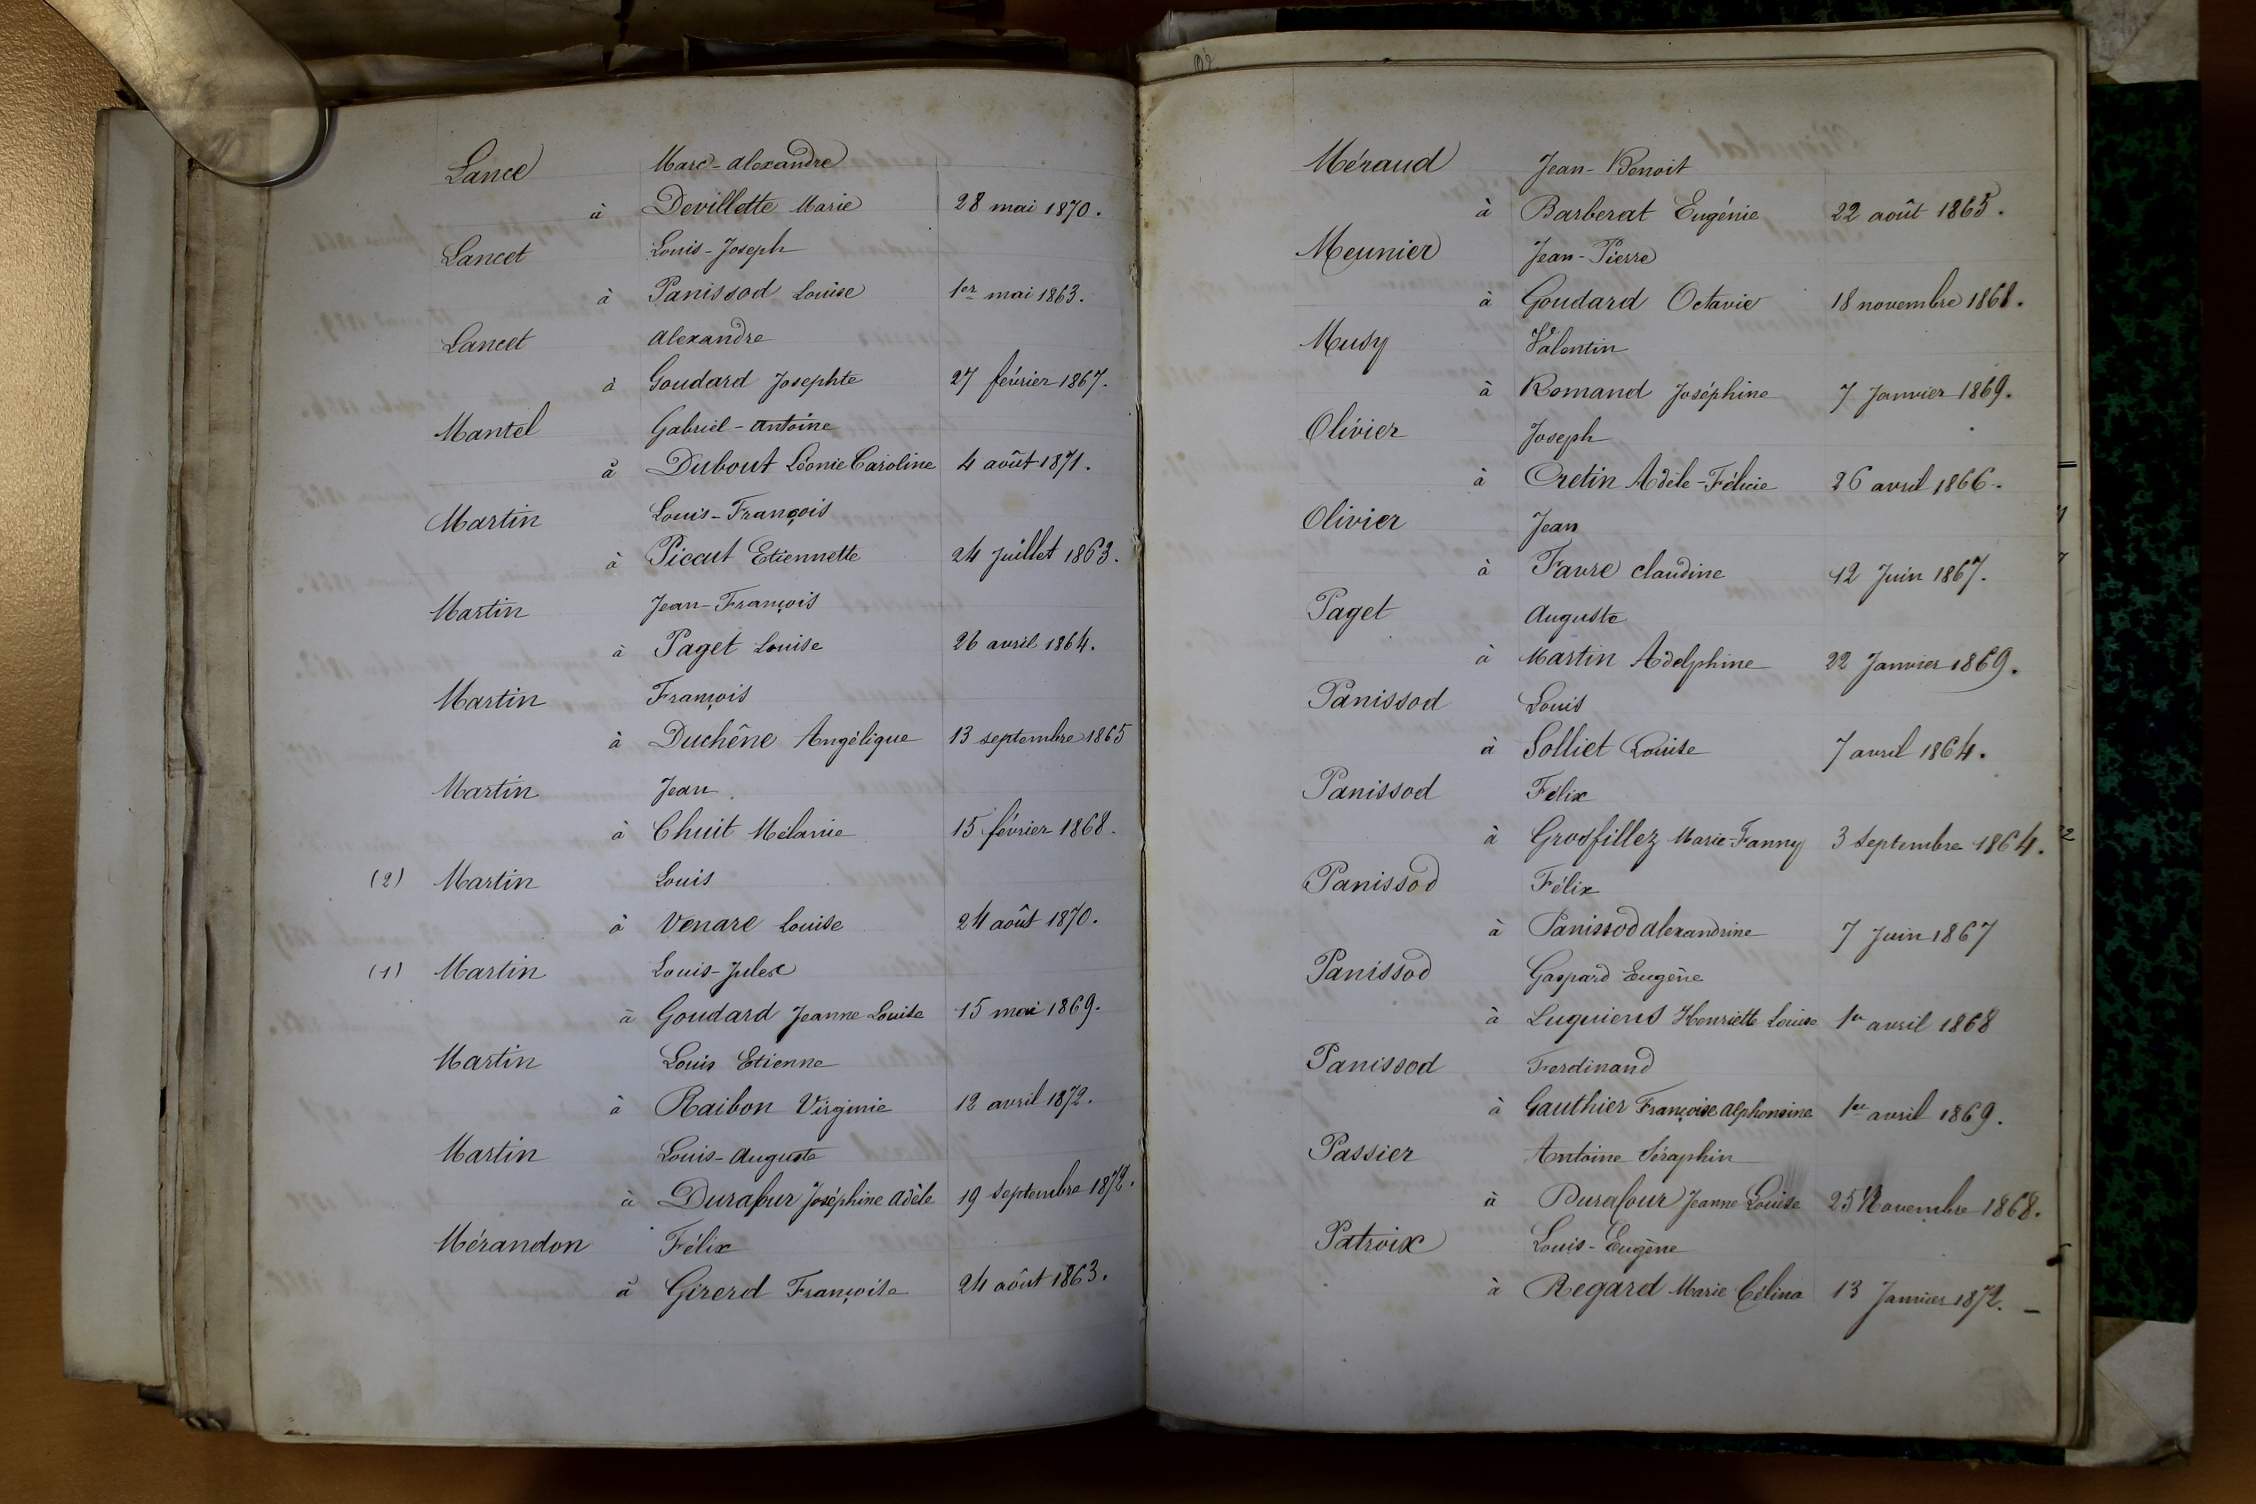 Lance Marc-alexandre
à Devillette Marie 28 mai 1870.
Lancet Louis-Joseph
à Panissod Louise 1er mai 1863.
Lancet alexandre
à Goudard Josephte 27 février 1867.
Mantel Gabriel-antoine
à Dubout Léonie Caroline 4 août 1871.
Martin Louis-François
à Piccut Etiennette 24 Juillet 1863.
Martin Jean-François
à Paget Louise 26 avril 1864.
Martin François
à Duchêne Angélique 13 septembre 1865
Martin Jean
à Chuit Mélanie 15 février 1868.
(2) Martin Louis
à Venare Louise 24 août 1870.
(1) Martin Louis-Jules
à Goudard Jeanne Louise 15 mai 1869.
Martin Louis Etienne
à Raibon Virginie 12 avril 1872.
Martin Louis-auguste
à Durafour Joséphine adèle 19 Septembre 1872.
Mérandon Félix
à Girerd Françoise 24 août 1863.
Méraud Jean-Benoit
à Barberat Eugénie 22 août 1865.
Meunier Jean-Pierre
à Goudard Octavie 18 novembre 1868.
Musy Valentin
à Romand Joséphine 7 Janvier 1869.
Olivier Joseph
à Cretin Adèle-Félicie 26 avril 1866.
Olivier Jean
à Favre claudine 12 Juin 1867.
Paget auguste
à Martin Adelphine 22 Janvier 1869.
Panissod Louis
à Solliet Louise 7 avril 1864.
Panissod Félix
à Grosfillez Marie-Fanny 3 Septembre 1864.
Panissod Félix
à Panissod alexandrine 7 Juin 1867
Panissod Gaspard Eugène
à Luquiens Henriette Louise 1er avril 1868
Panissod Ferdinand
à Gauthier Françoise alphonsine 1er avril 1869.
Passier Antoine Séraphin
à Durafour Jeanne Louise 25 Novembre 1868.
Patroix Louis-Eugène
à Regard Marie Célina 13 Janvier 1872.